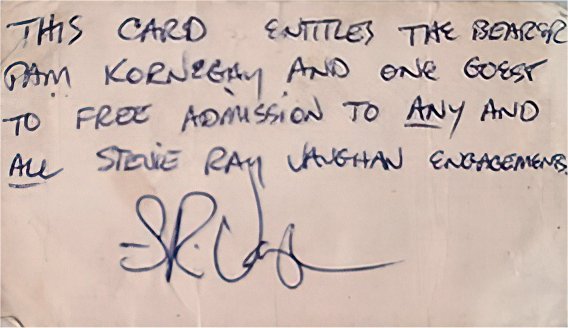 THIS CARD ENTITLES THE BEARER
PAM KORNEGAY AND ONE GUEST
TO FREE ADMISSION TO ANY AND
ALL STEVIE RAY VAUGHAN ENGAGEMENTS.
SR. Vaughan